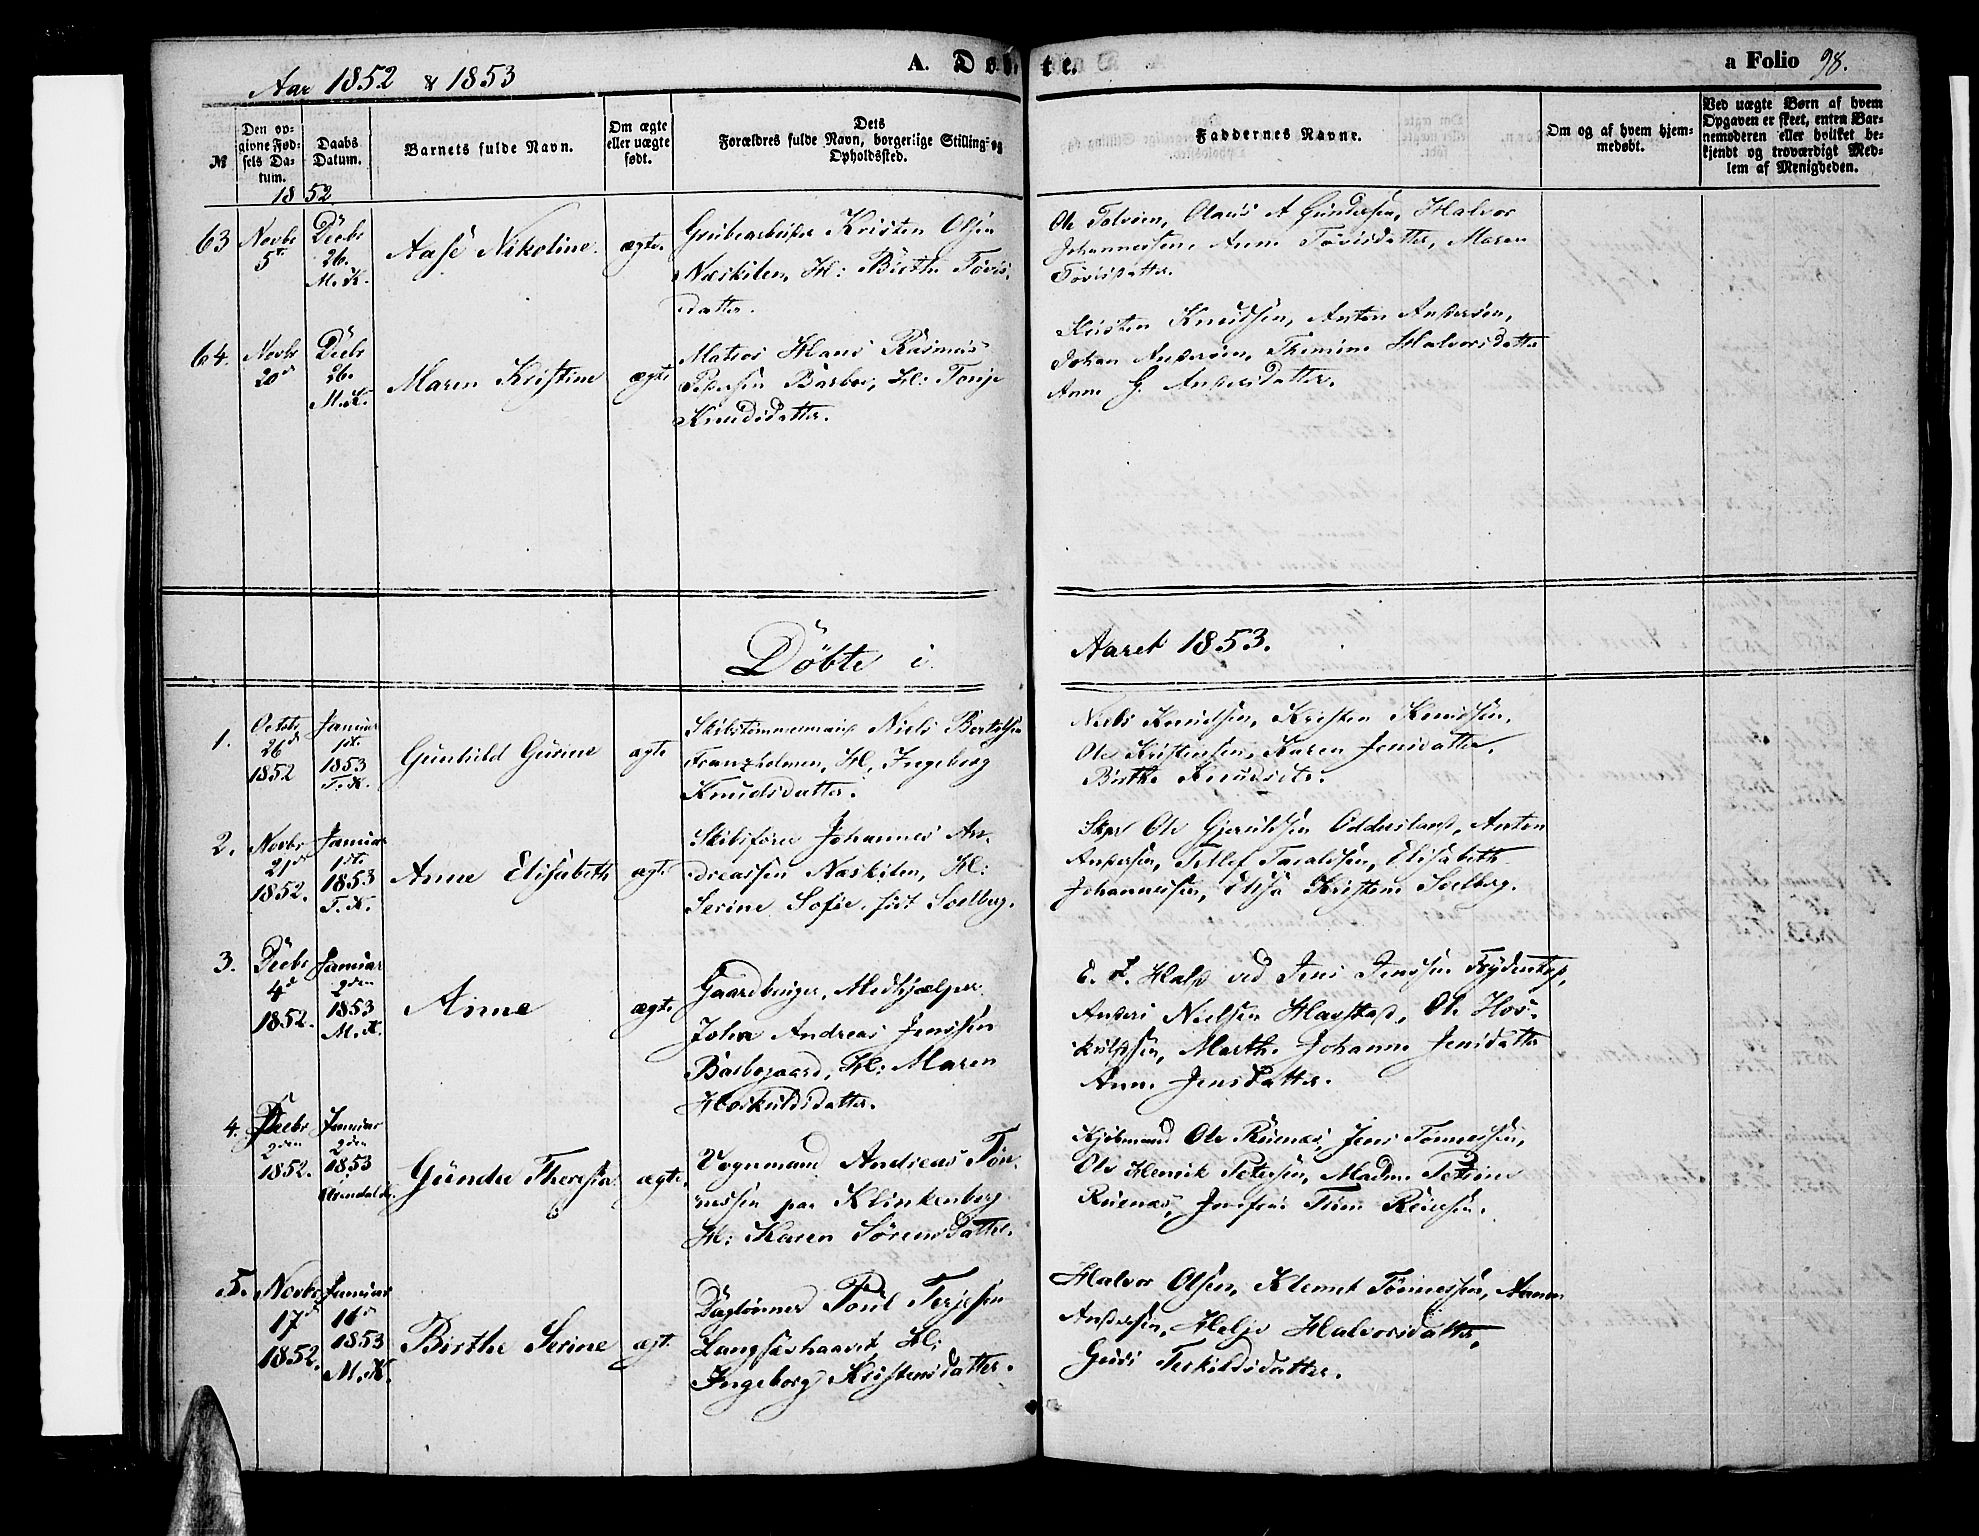 Aar 1852 & 1853
A. Døbte.
a Folio 98.
№
Den opgivne Fødsels Datum.
Daabs Datum.
Barnets fulde Navn.
Om ægte eller uægte født.
Dets Forældres fulde Navn, borgerlige Stilling og Opholdssted.
Faddernes Navne.
Om og af hvem hjemmedøbt.
Ved uægte Børn af hvem Opgaven er skeet, enten Barnemoderen eller hvilket bekjendt og troværdigt Medlem af Menigheden.
1852
63 Novbr 5t Decbr 26. M. K. Aase Nikoline ægte
Grubearbeider Kristen Olsen
Næskilen, H: Birthe Tovis-
datter.
Ole Olaus A Gundersen, Halvor
Johannessen, Anne Tovisdatter, Maren
Tovisdatter.
64. Novbr 20d Decbr 26. M. K. Maren Kristine ægte
Matros Hans Rasmus
Petersen Barbo, H: Tonje
Knudsdatter.
Kristen Knudsen, Anton Andersen,
Johan Andersen, Halvorsdatter
Anne G. Andersdatter.
Døbte i Aaret 1853.
1. Octobr 26d 1852 Januar 1st. 1853 T. K. Gunhild Gurine ægte
Skibstømmermand Niels Bertelsen
Franzholmen, H, Ingeborg
Knudsdatter.
Niels Knudsen, Kristen Knudsen,
Ole Kristensen, Karen Jensdatter,
Birthe
2. Novbr 21de 1852. Januar 1ste 1853 T. K. Anne Elisabeth ægte
Skibsfører Johannes An-
dreassen Næskilen, H:
Serine Sofie, født Soelberg.
Skpr Ole Gjeruldsen Anton
Andersen, Elisabeth
Johannessen, Elise Kristine Soelberg.
3. Decbr 4d 1852. Januar 2den 1853 M. K. Anne ægte
Gaardbruger, Medhjælper
John Andreas Jenssen
Barbogaard, H: Maren
Hoskuldsdatter.
ved Jens Jenssen
Anders Nielsen Ole Hos-
kuldsen, Marthe Johanne Jensdatter
Anne Jensdatter.
4. Decbr 2den 1852. Januar 2den 1853 Arendal K. Gunda Theresia ægte
Vognmand Andreas Tøn-
nessen paa Klinkenberg
H: Karen Sørensdatter.
Kjøbmand Ole Ruenæs, Jens Tønnessen,
Ole Henrik Petersen, Madm Petrine
Ruenæs, Jomfru
5. Novbr 17d 1852. Januar 16d 1853 M. K. Birthe Serine ægt.
Daglønner Poul Terjesen
Langsæshaavet H:
Ingeborg Kristensdatter.
Halvor Olsen, Klemet Tønnessen,
Andersen, Helje Halvorsdatter,
Guri Terkildsdatter.